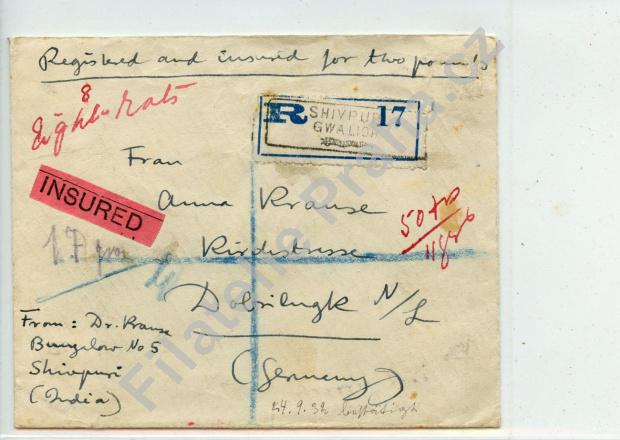 Registered and insured for two pounds
8
Eight
R SHIVPURI 17
GWALIOR
Frau
Anna Krause
INSURED
50
17 gm
Kirchstrasse
Dobrilugk N/L
From: Dr. Krause
Bungalow No 5
Shivpuri
(India)
(Germany)
24.9.32 bestätigt
Filatelie Praha.cz